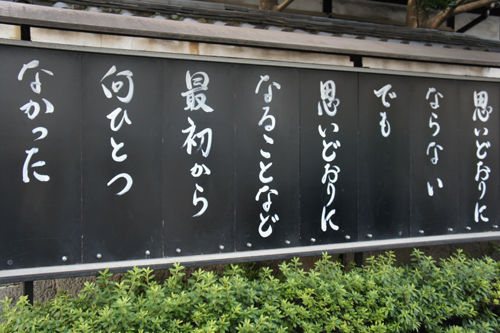 思いどおりに
ならない
でも
思いどおりに
なることなど
最初から
何ひとつ
なかった